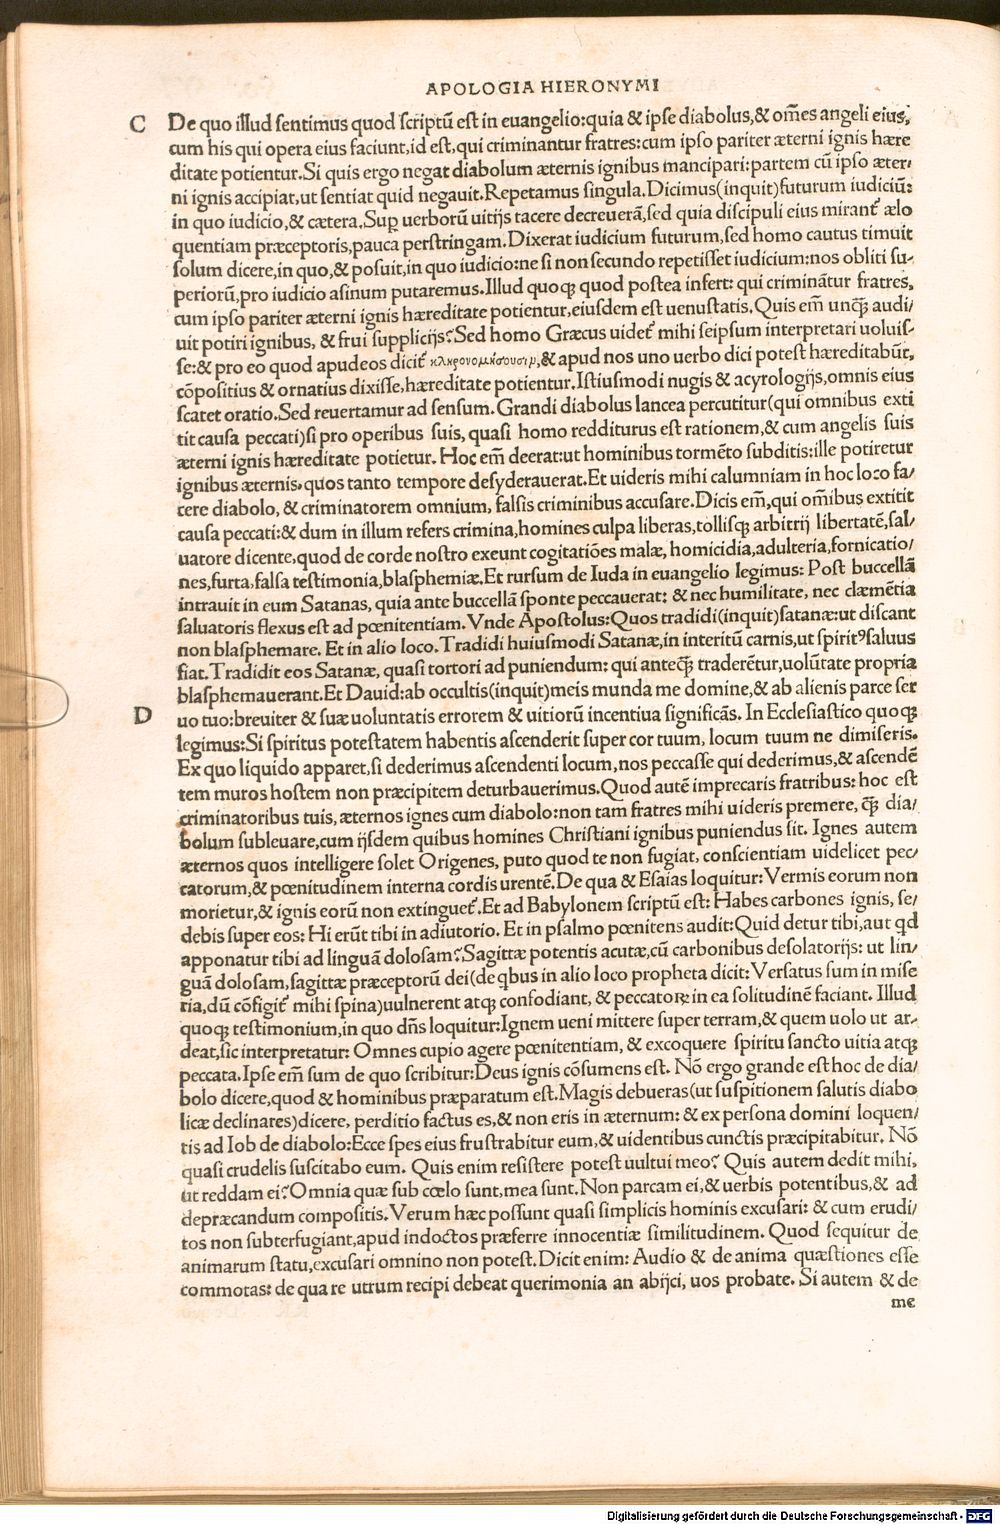 APOLOGIA HIERONYMI
C De quo illud sentimus quod scriptũ est in euangelio:quia & ipse diabolus,& om̃es angeli eius,
cum his qui opera eius faciunt,id est,qui criminantur fratres:cum ipso pariter æterni ignis hære
ditate potientur.Si quis ergo negat diabolum æternis ignibus mancipari:partem cũ ipso æter/
ni ignis accipiat,ut sentiat quid negauit.Repetamus singula.Dicimus(inquit)futurum iudiciũ:
in quo iudicio,& cætera.Sup uerborũ uitijs tacere decreuerã,sed quia discipuli eius mirant᷑ ælo
quentiam præceptoris,pauca perstringam.Dixerat iudicium futurum,sed homo cautus timuit
solum dicere,in quo,& posuit,in quo iudicio:ne si non secundo repetisset iudicium:nos obliti su-
periorũ,pro iudicio asinum putaremus.Illud quoqꝫ quod postea infert: qui criminãtur fratres,
cum ipso pariter æterni ignis hæreditate potientur,eiusdem est uenustatis.Quis em̃ unqꝫ̃ audi/
uit potiri ignibus, & frui supplicijs?Sed homo Græcus uidet᷑ mihi seipsum interpretari uoluis-
se:& pro eo quod apudeos dicit᷑ κληρονομήσουσιν,& apud nos uno uerbo dici potest hæreditabũt,
cõpositius & ornatius dixisse,hæreditate potientur.Istiusmodi nugis & acyrologijs,omnis eius
scatet oratio.Sed reuertamur ad sensum.Grandi diabolus lancea percutitur(qui omnibus exti
tit causa peccati)si pro operibus suis, quasi homo redditurus est rationem,& cum angelis suis
æterni ignis hæreditate potietur. Hoc em̃ deerat:ut hominibus tormẽto subditis:ille potiretur
ignibus æternis,quos tanto tempore desyderauerat.Et uideris mihi calumniam in hoc loco fa/
cere diabolo, & criminatorem omnium, falsis criminibus accusare.Dicis em̃,qui om̃ibus extitit
causa peccati:& dum in illum refers crimina,homines culpa liberas,tollisqꝫ arbitrij libertatẽ,sal/
uatore dicente,quod de corde nostro exeunt cogitatiões malæ, homicidia,adulteria,fornicatio/
nes,furta,falsa testimonia,blasphemiæ.Et rursum de Iuda in euangelio legimus: Post buccellã
intrauit in eum Satanas, quia ante buccellã sponte peccauerat: & nec humilitate, nec clæmẽtia
saluatoris flexus est ad pœnitentiam.Vnde Apostolus:Quos tradidi(inquit)satanæ:ut discant
non blasphemare. Et in alio loco.Tradidi huiusmodi Satanæ,in interitũ carnis,ut spirit⁹saluus
fiat.Tradidit eos Satanæ, quasi tortori ad puniendum: qui anteqꝫ̃ traderẽtur,uolũtate propria
blasphemauerant.Et Dauid:ab occultis(inquit)meis munda me domine,& ab alienis parce ser
D uo tuo:breuiter & suæ uoluntatis errorem & uitiorũ incentiua significãs. In Ecclesiastico quoqꝫ
legimus:Si spiritus potestatem habentis ascenderit super cor tuum, locum tuum ne dimiseris.
Ex quo liquido apparet,si dederimus ascendenti locum,nos peccasse qui dederimus,& ascendẽ
tem muros hostem non præcipitem deturbauerimus.Quod autẽ imprecaris fratribus: hoc est
criminatoribus tuis, æternos ignes cum diabolo:non tam fratres mihi uideris premere, qꝫ̃ dia/
bolum subleuare,cum ijsdem quibus homines Christiani ignibus puniendus sit. Ignes autem
æternos quos intelligere solet Origenes, puto quod te non fugiat, conscientiam uidelicet pec/
catorum,& pœnitudinem interna cordis urentẽ.De qua & Esaias loquitur:Vermis eorum non
morietur,& ignis eorũ non extinguet᷑.Et ad Babylonem scriptũ est: Habes carbones ignis, se/
debis super eos: Hi erũt tibi in adiutorio. Et in psalmo pœnitens audit:Quid detur tibi,aut qd
apponatur tibi ad linguã dolosam?Sagittæ potentis acutæ,cũ carbonibus desolatorijs: ut lin/
guã dolosam,sagittæ præceptorũ dei(de qbus in alio loco propheta dicit: Versatus sum in mise
ria,dũ cõfigit᷑ mihi spina)uulnerent atqꝫ confodiant, & peccatoꝝ in ea solitudinẽ faciant. Illud
quoqꝫ testimonium,in quo dñs loquitur:Ignem ueni mittere super terram,& quem uolo ut ar-
deat,sic interpretatur: Omnes cupio agere pœnitentiam, & excoquere spiritu sancto uitia atqꝫ
peccata.Ipse em̃ sum de quo scribitur:Deus ignis cõsumens est. Nõ ergo grande est hoc de dia/
bolo dicere,quod & hominibus præparatum est.Magis debueras(ut suspitionem salutis diabo
licæ declinares)dicere, perditio factus es,& non eris in æternum: & ex persona domini loquen/
tis ad Iob de diabolo:Ecce spes eius frustrabitur eum,& uidentibus cunctis præcipitabitur. Nõ
quasi crudelis suscitabo eum. Quis enim resistere potest uultui meo? Quis autem dedit mihi,
ut reddam ei?Omnia quæ sub cœlo sunt,mea sunt.Non parcam ei,& uerbis potentibus,& ad
depræcandum compositis.Verum hæc possunt quasi simplicis hominis excusari: & cum erudi/
tos non subterfugiant,apud indoctos præferre innocentiæ similitudinem. Quod sequitur de
animarum statu,excusari omnino non potest.Dicit enim: Audio & de anima quæstiones esse
commotas: de qua re utrum recipi debeat querimonia an abijci, uos probate. Si autem & de
me
Digitalisierung gefördert durch die Deutsche Forschungsgemeinschaft - DFG